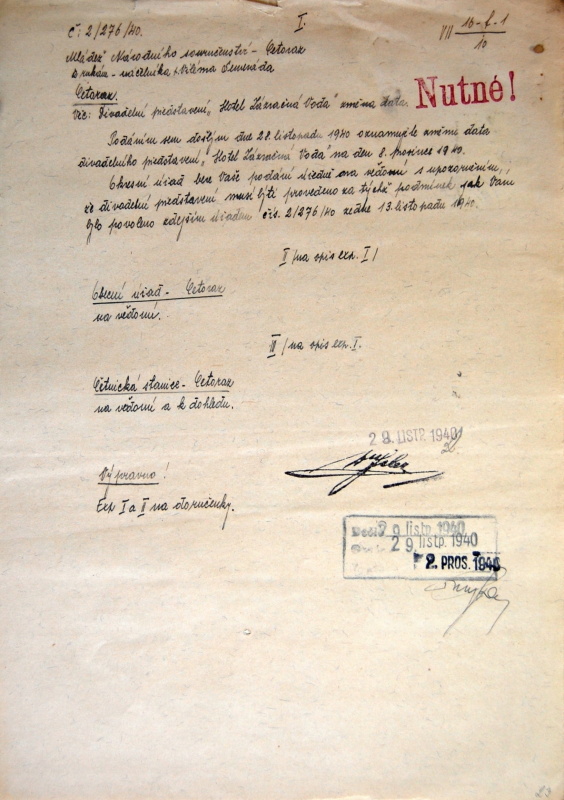 Č: 2/276/40.
I.
VII 16-f-1
10
Mládež Národního souručenství - Cetoraz
k rukám - náčelníka p. Viléma
Cetoraz.
Nutné!
Věc: Divadelní představení „Hotel Zázračná Voda" změna data.
Podáním sem došlým dne 28. listopadu 1940 oznamujete změnu data
divadelního představení „Hotel Zázračná Voda" na den 8. prosince 1940.
Okresní úřad bere Vaše podání vzedné na vědomí s upozorněním,
že divadelní představení musí býti provedeno za týchž podmínek jak Vám
bylo povoleno zdejším úřadem čís. 2/276/40 ze dne 13. listopadu 1940.
II/na opis exp. I/
Obecní úřad - Cetoraz
na vědomí.
III/na opis exp. I.
Četnická stanice - Cetoraz
na vědomí a k dohledu.
28. LISTP. 1940
Výpravno!
Exp I a II na doručenky.
Došlo 29. listp. 1940
29. listp. 1940
2. PROS. 1940